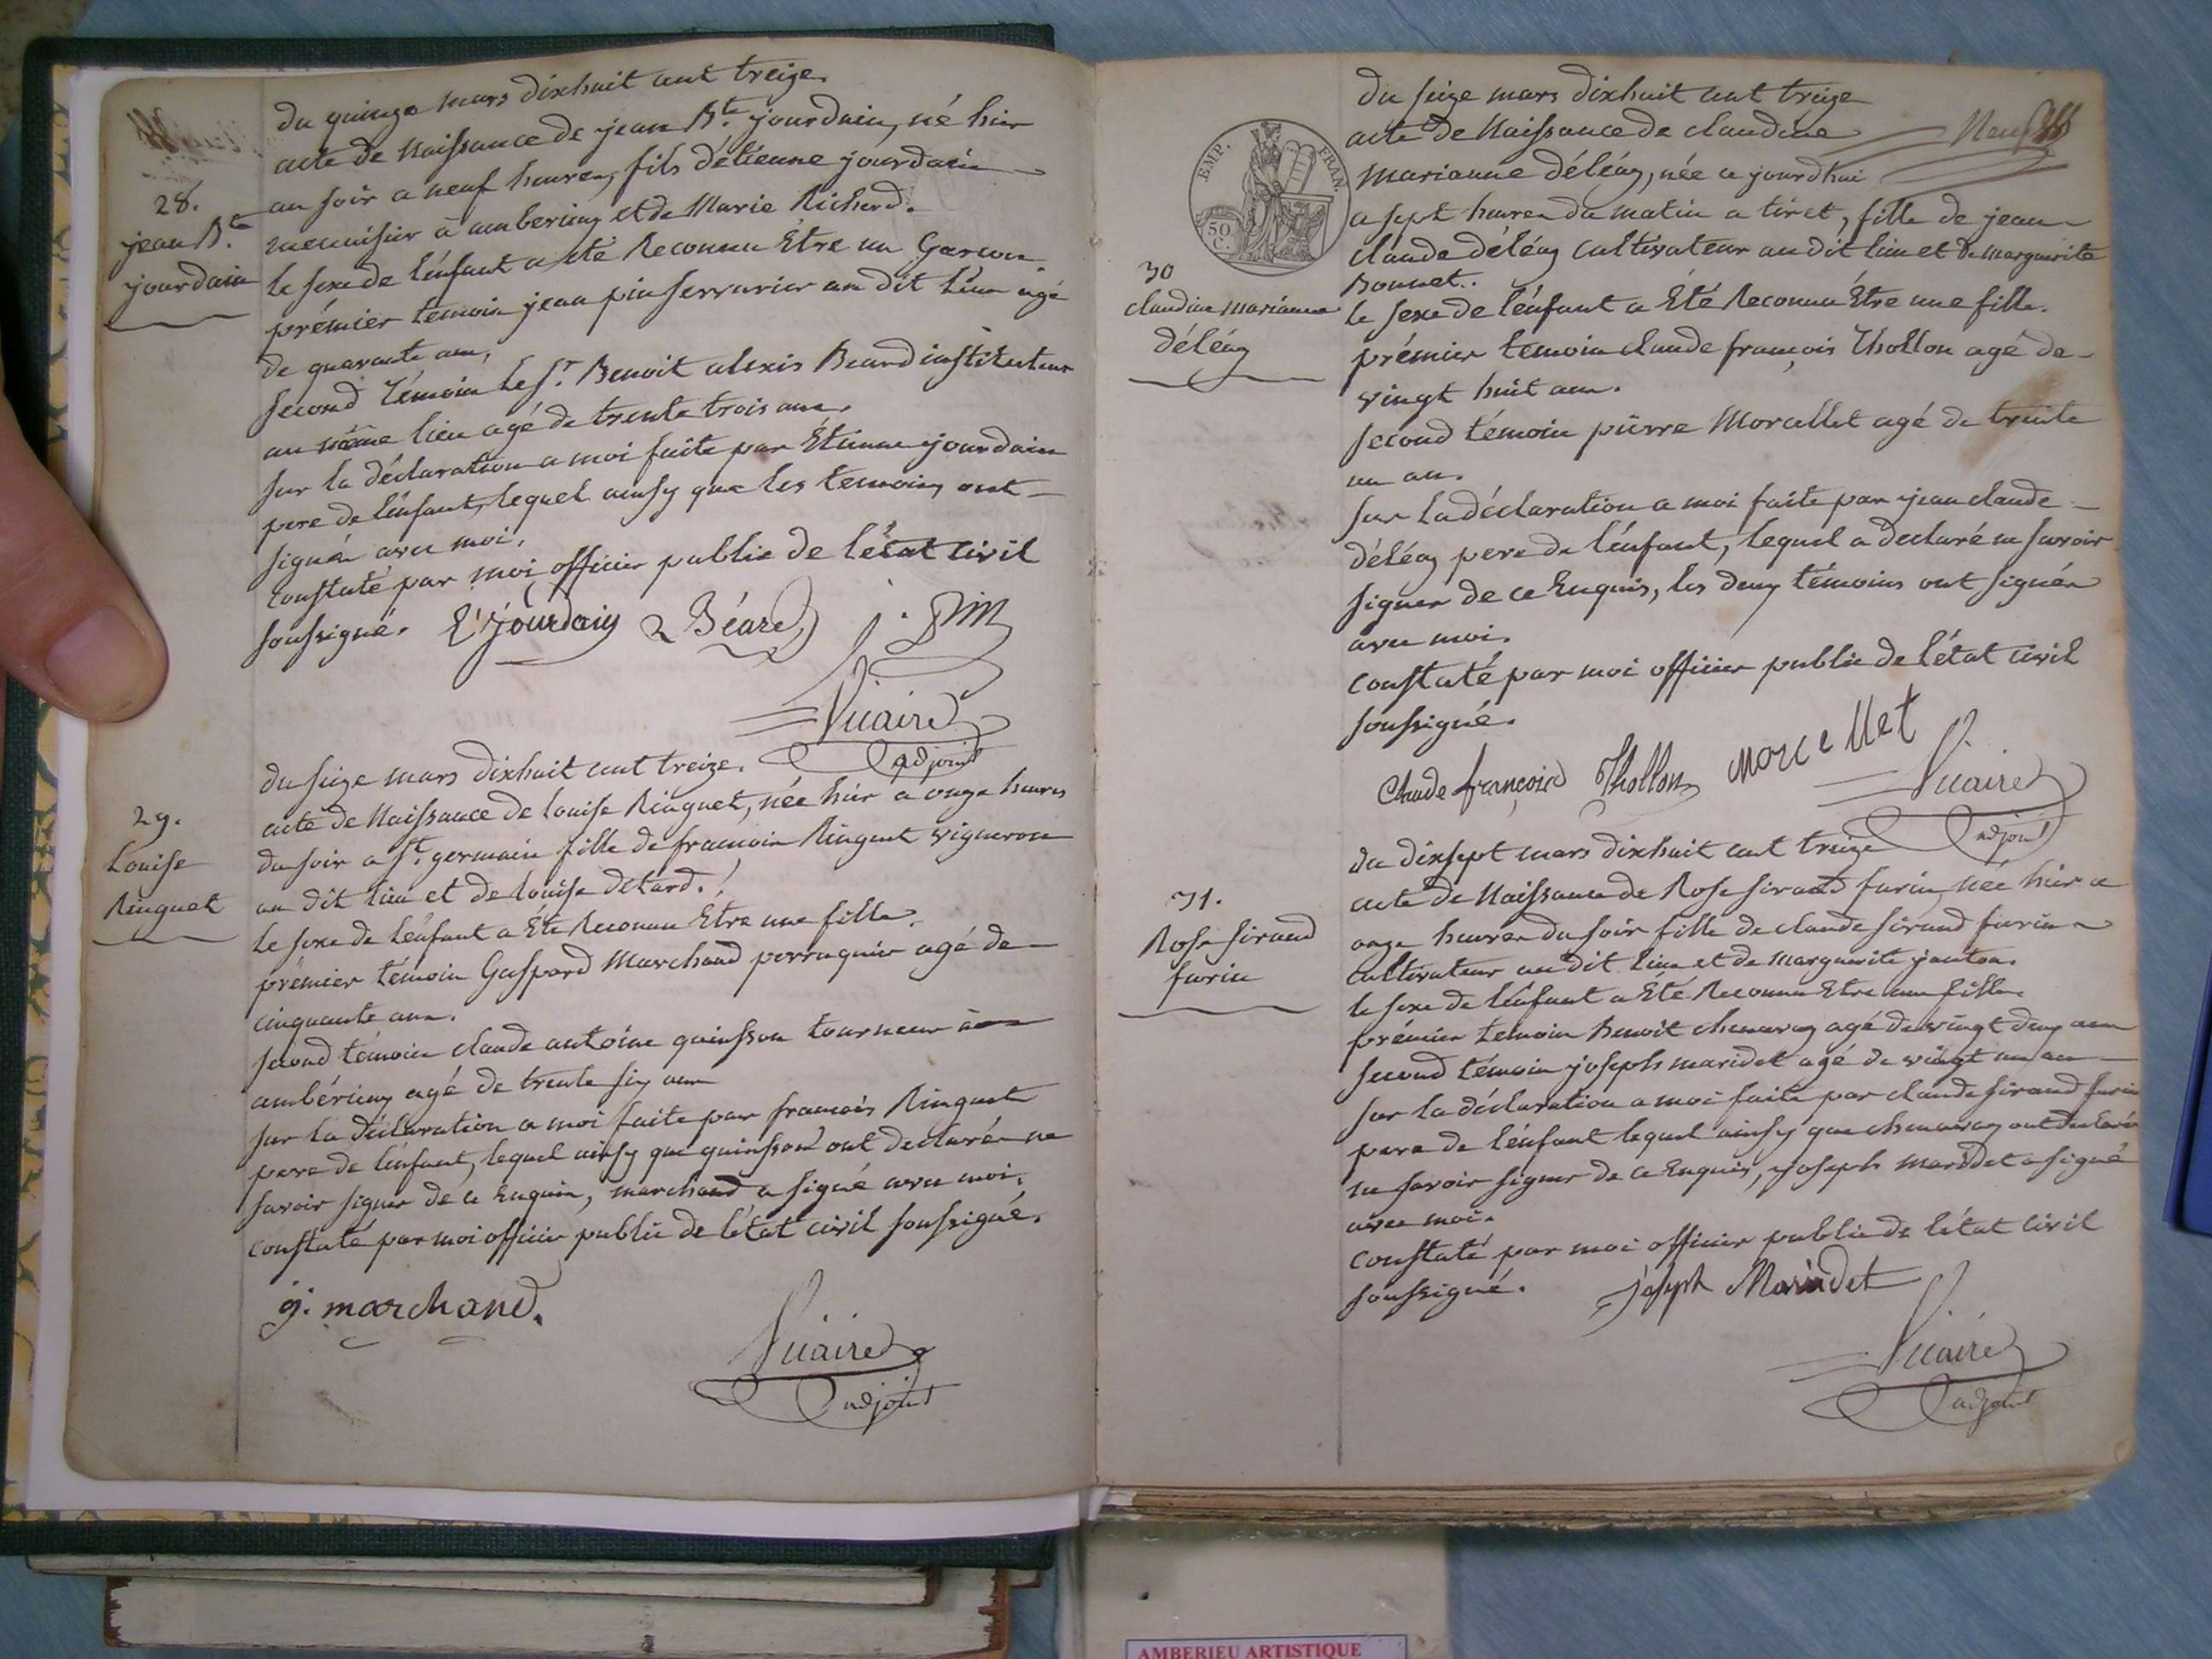 du quinze mars dixhuit cent treize.
acte de Naissance de jean Bte. jourdain, né hier
au soir a neuf heures, fils d'étienne jourdain
menuisier à amberieux et de Marie Richerd.
le sexe de l'énfant a été Reconnu Etre un Garcon.
prémier temoin jean pin serrurier au dit lieu agé
de quarante ans,
second témoin le Sr. Benoit alexis Beard instituteur
au même lieu agé de trente trois ans.
sur la déclaration a moi faite par Étienne jourdain
pere de l'énfant, lequel ainsy que les temoins ont
signés avec moi,
constaté par moi officier public de l'état civil
soussigné. E jourdain Béard j. pin
Vicaire
adjoint
28.
jean Bte
jourdain
du seize mars dixhuit cent treize.
acte de Naissance de louise Ringuet, née hier a onze heures
du soir a St. germain fille de francois Ringuet vigneron
au dit lieu et de louise détard.
le sexe de l'énfant a Été Reconnu Etre une fille.
prémier témoin Gaspard Marchand perruquier agé de
cinquante ans.
second témoin claude antoine quinsson tourneur à
ambérieux agé de trente six ans
sur la déclaration a moi faite par francois Ringuet
pere de l'énfant, lequel ainsy que quinsson ont declarés ne
savoir signer de ce Enquis, marchand a signé avec moi.
constaté par moi officier public de l'état civil soussigné.
g. marchand.
Vicaire
adjoint
29.
Louise
Ringuet
du seize mars dixhuit cent treize
acte de Naissance de claudine
marianne déléaz, née ce jourdhui
a sept heures du matin a tiret, fille de jean
claude déléaz cultivateur au dit lieu et de marguerite
Bonnet.
le sexe de l'énfant a Été Reconnu Être une fille.
prémier temoin claude françois Thollon agé de
vingt huit ans.
second témoin pierre Morcellet agé de trente
un an.
sur la déclaration a moi faite par jean claude
déléaz pere de l'énfant, lequel a declaré ne savoir
signer de ce Enquis, les deux témoins ont signés
avec moi.
constaté par moi officier public de l'état civil
soussigné.
Claude françois Thollon morcellet
Vicaire
adjoint
EMP. FRAN.
50
C.
30
claudine marianne
déléaz
du dixsept mars dixhuit cent treize
acte de Naissance de Rose siraud furin, née hier a
onze heures du soir fille de claude siraud furin
cultivateur au dit lieu et de marguerite janton.
le sexe de l'énfant a Été Reconnu Etre une fille.
prémier témoin Benoit chenavaz agé de vingt deux ans
second témoin joseph maridet agé de vingt un an
sur la déclaration a moi faite par claude siraud furin
pere de l'énfant lequel ainsy que chenavaz ont declarés
ne savoir signer de ce Enquis, joseph maridet a signé
avec moi.
constaté par moi officier public de l'état civil
soussigné. joseph Maridet
Vicaire
adjoint
31.
Rose siraud
furin
AMBERIEU ARTISTIQUE